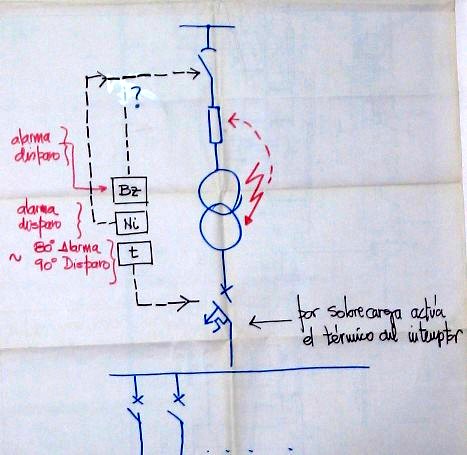 ?
alarma
disparo
Bz
alarma
disparo
Ni
~ 80° Alarma
90° Disparo
t
por sobrecarga actúa
el térmico del interruptor